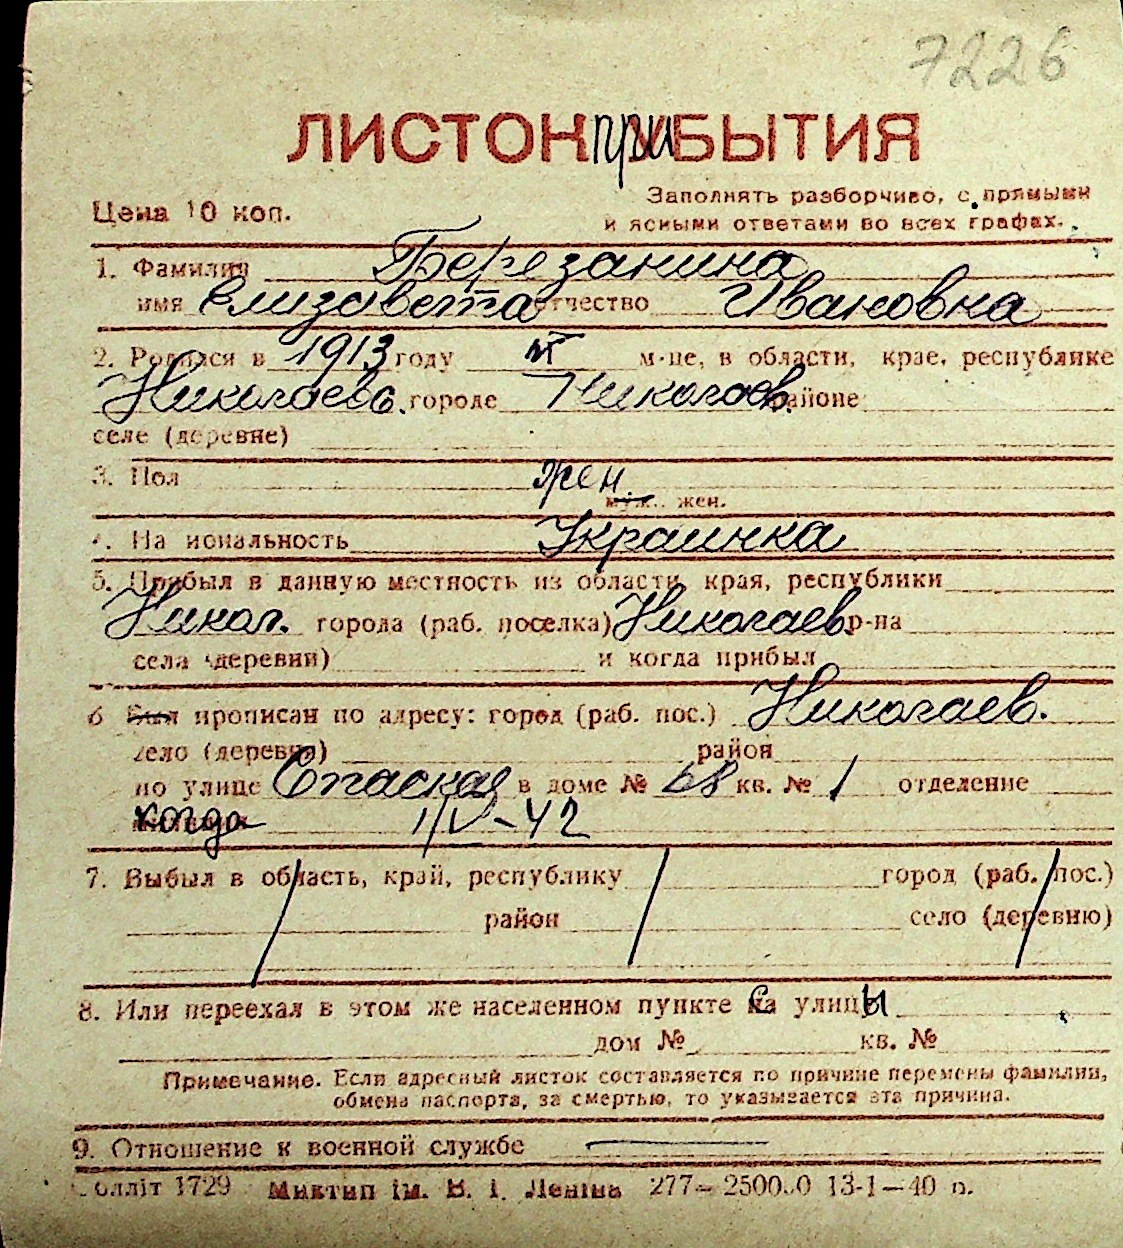 7226
ЛИСТОК прибытия
Цена 10 коп.
Заполнять разборчиво, с прямыми
и ясными ответами во всех графах.
1. Фамилия Березанина
имя Елизавета отчество Ивановна
2. Родился в 1913 году VI м-це, в области, крае, республике
Николаевс. городе Николаев. районе
селе (деревне)
3. Пол жен
муж. жен.
4. Национальность Украинка
5. Прибыл в данную местность из области, края, республики
Никол. города (раб. поселка) Николаев р-на
села (деревни) и когда прибыл
6 Был прописан по адресу: город (раб. пос.) Николаев.
село (деревня) район
по улице Спаская в доме № 68 кв. № 1 отделение
когда 1/V-42
7. Выбыл в область, край, республику город (раб. пос.)
район село (деревню)
8. Или переехал в этом же населенном пункте са улицы
дом № кв. №
Примечание. Если адресный листок составляется по причине перемены фамилии,
обмена паспорта, за смертью, то указывается эта причина.
9. Отношение к военной службе
олліт 1729 Миктип ім. В. І. Леніна 277— 13-1—40 р.